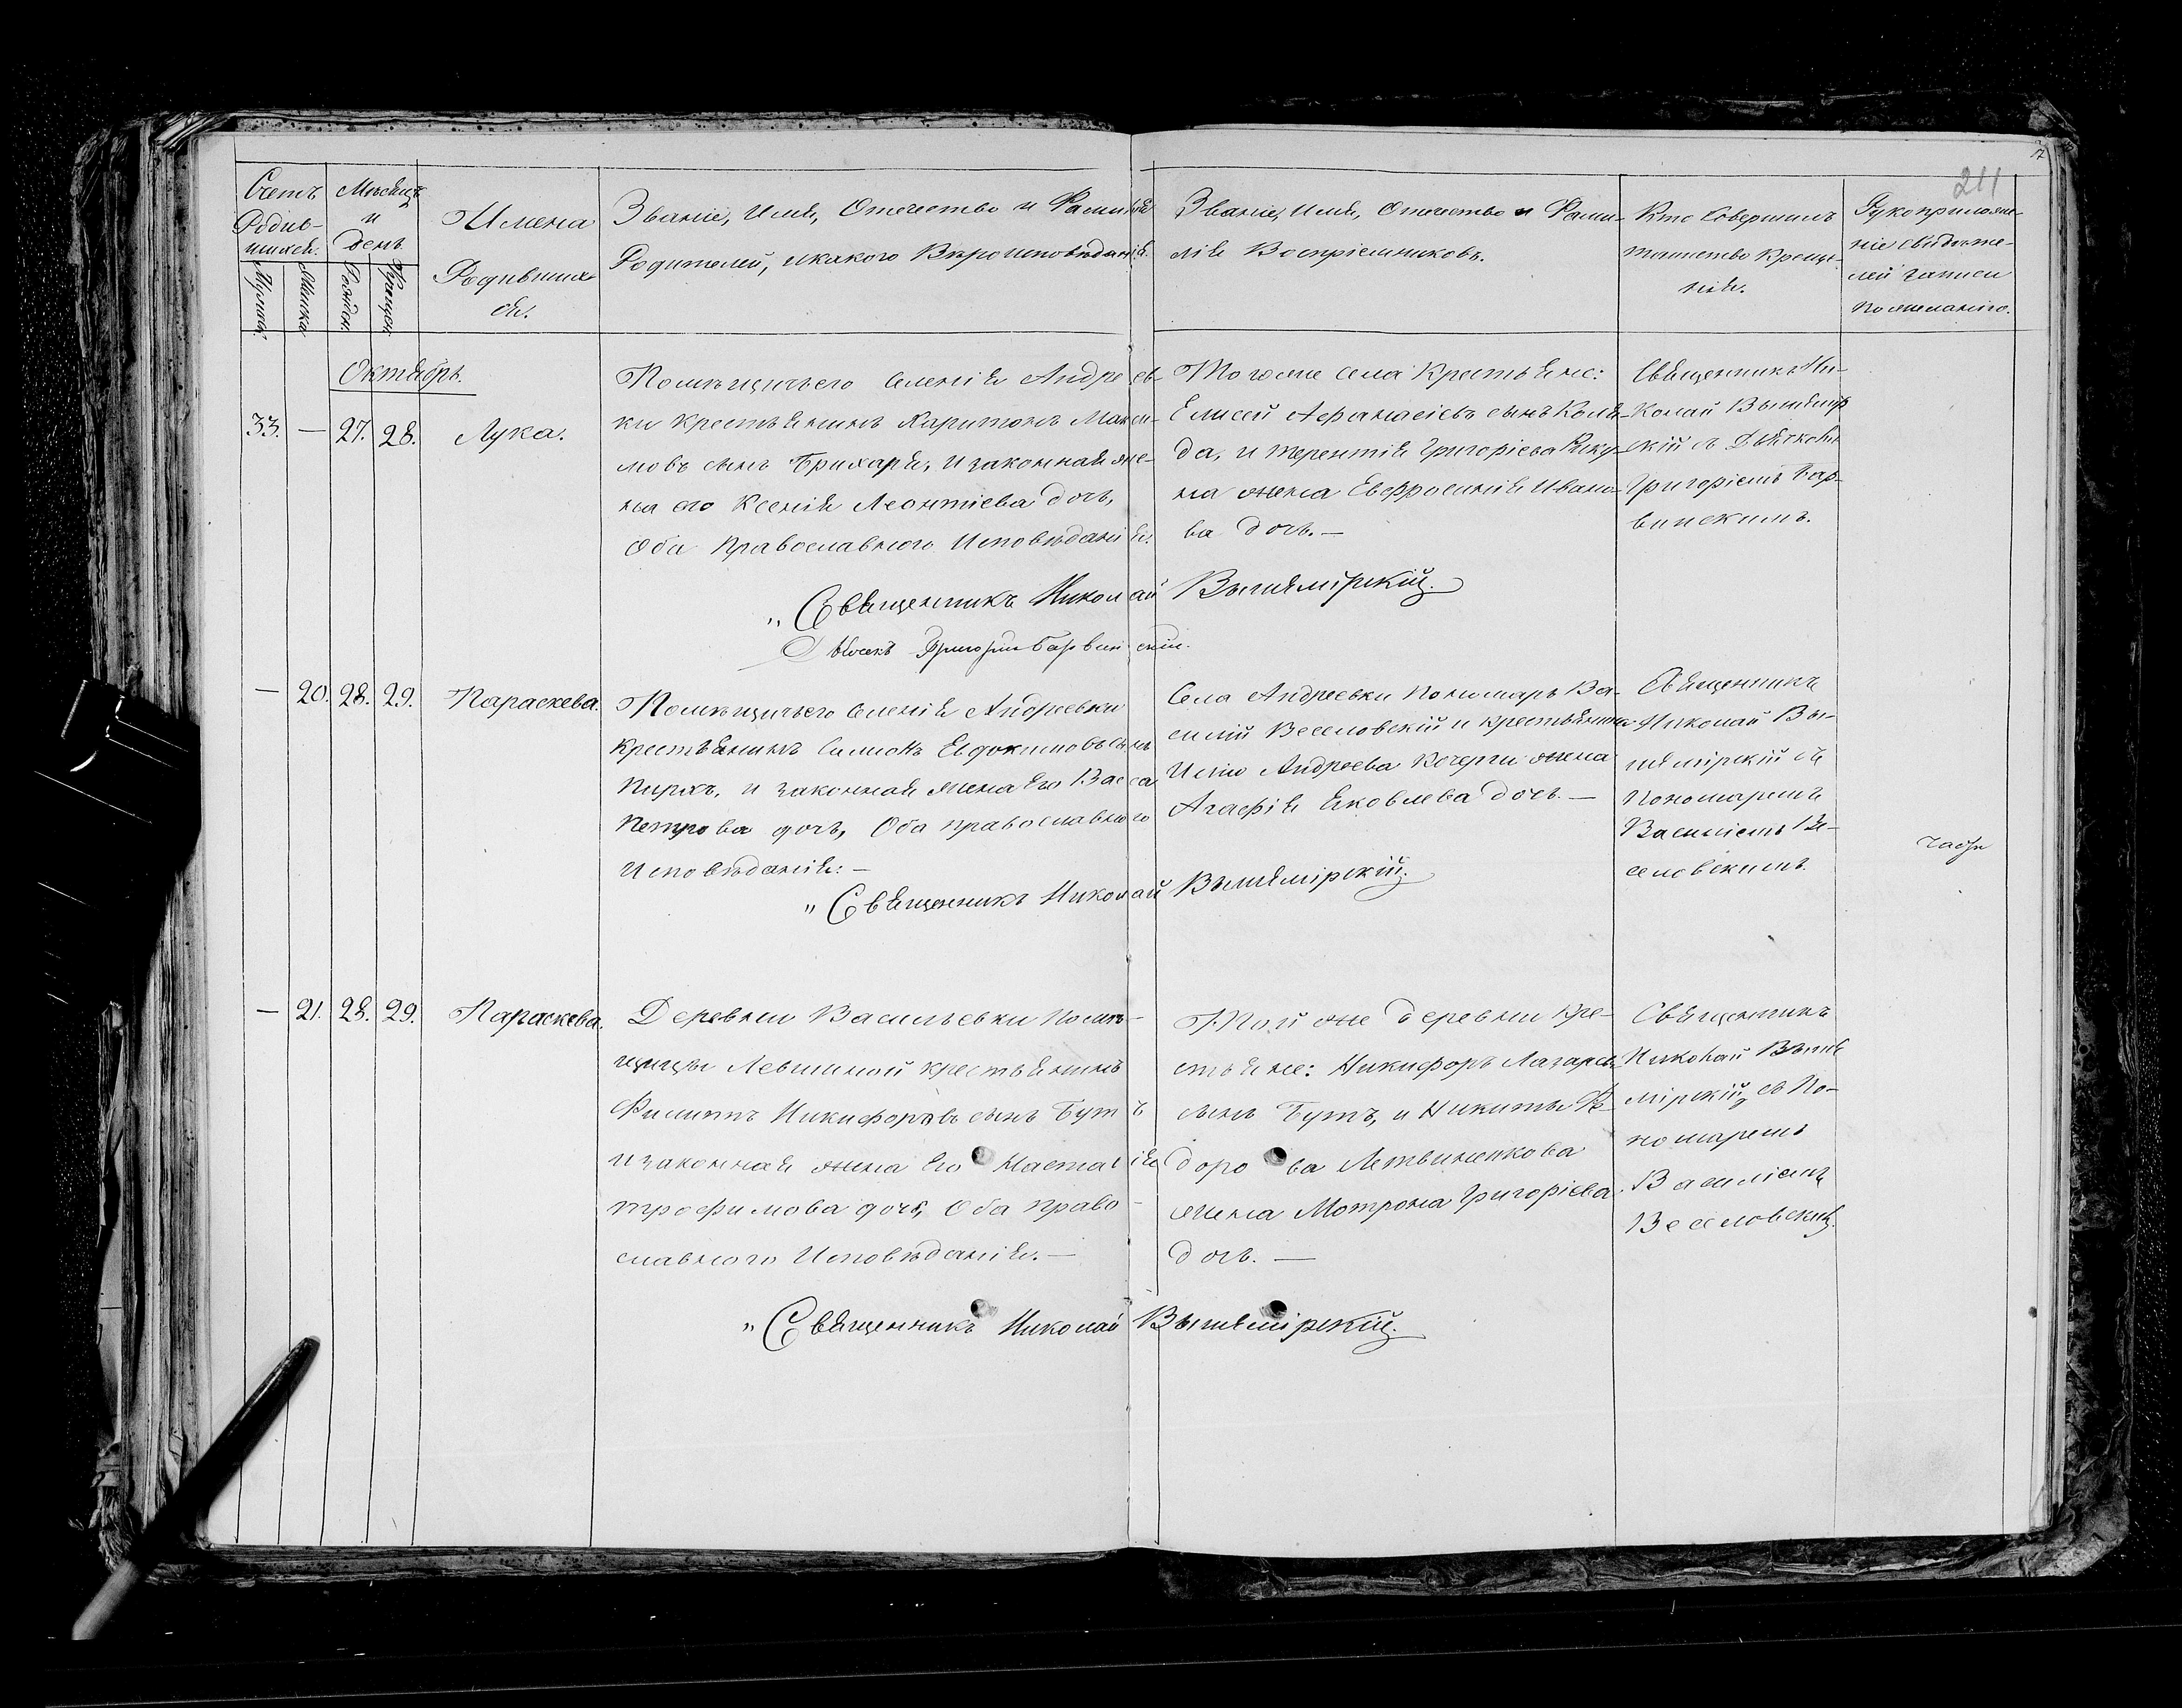 211
Счетъ
Родив-
шихся.
Мужеск.
Женска.
Мѣсяцъ
и
День.
Рожден.
Крещен.
Имена
Родивших
ся.
Званіе, Имя, Отечество и Фамилія
Родителей, и какого Вѣроисповѣданія.
Званіе, Имя, Отечество и Фами-
лія Воспріемниковъ.
Кто Совершилъ
таинство Креще-
нія.
Рукоприложе-
ніе свидѣте-
лей записи
по желанію.
Октябрь.
33. — 27. 28. Лука.
Помѣщичьего Селенія Андреев-
ки крестьянинъ Харитонъ Макси-
мовъ сынъ Брихаря, и законная же-
на его Ксенія Леонтіева дочь,
Оба Православного Исповѣданія.
Тогоже села Крестьяне:
Елисей Афанасіевъ сынъ Коля-
да, и Терентія Григоріева
на жена Евфросинія Ивано-
ва дочь. —
Священникъ Ни-
колай Вышемір
скій съ Дьячкомъ
Григоріемъ Бар-
винскимъ.
„ Священникъ Николай Вышемірскій.
Дьячекъ Григорій Барвинскій.
— 20. 28. 29. Параскева.
Помѣщичьего Селенія Андреевки
крестьянинъ Симонъ Евдокимовъ сынъ
Пирхъ, и законная жена Его Васса
Петрова дочь, Оба православного
Исповѣданія: —
Села Андреевки Пономарь Ва-
силій Веселовскій и крестьянина
Исаію Андреева Кочерги жена
Агафія Яковлева дочь. —
Священникъ
Николай Вы-
шемірскій съ
Пономаремъ
Василіемъ Ве-
селовскимъ.
„ Священникъ Николай Вышемірскій.
— 21. 28. 29. Параскева.
Деревни Васильевки Помѣ-
щицы Левшиной крестьянинъ
Филиппъ Никифоровъ сынъ Бутъ
и законная жена Его Настасія
Трофимова дочь, Оба право-
славного Исповѣданія. —
Той же деревни Кре-
стьяне: Никифоръ Лазаревъ
сынъ Бутъ, и Никиты Фе-
дорова Летвиненкова
жена Мотрона Григоріева
дочь. —
Священникъ
Николай Выше
мірскій съ По-
номаремъ
Василіемъ
Веселовским.
„ Священникъ Николай Вышемірскій.